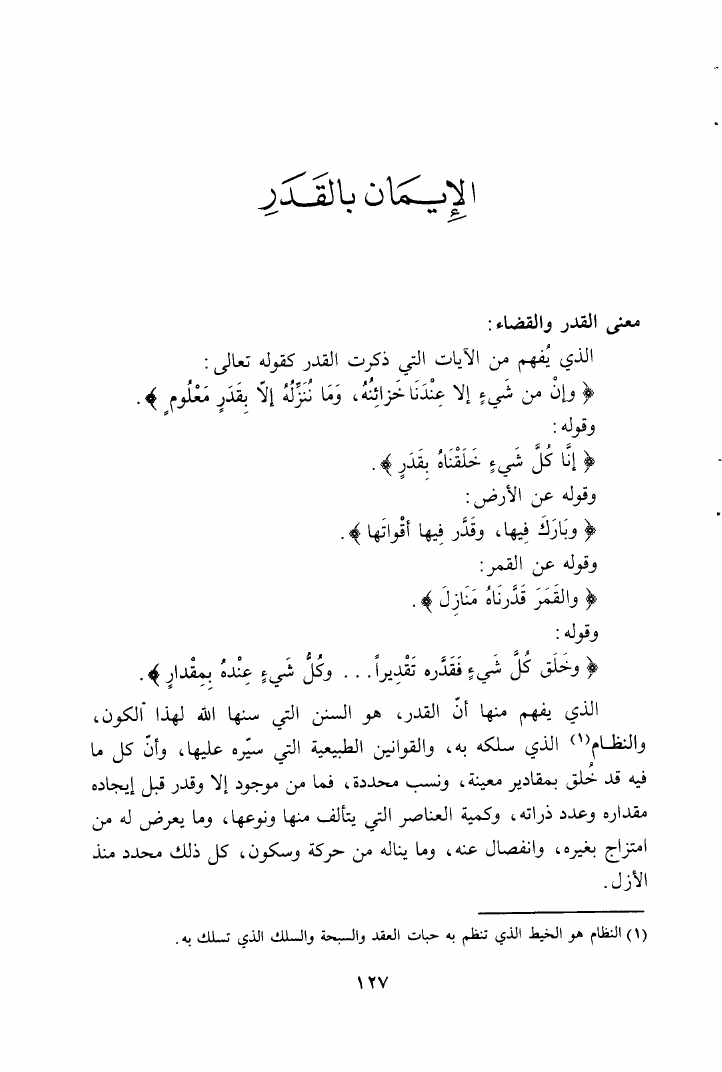 الإِيـمَان بالقَـدَرِ
معنى القدر والقضاء:
الذي يُفهم من الآيات التي ذكرت القدر كقوله تعالى:
﴿ وإنْ من شَيءٍ إلا عِنْدَنَا خَزائِنُهُ، وَمَا نُنَزِّلُهُ إلّا بِقَدَرٍ مَعْلُومٍ ﴾.
وقوله:
﴿ إنَّا كُلَّ شَيءٍ خَلَقْنَاهُ بِقَدَرٍ ﴾.
وقوله عن الأرض:
﴿ وبَارَكَ فِيها، وقَدَّر فِيها أقْواتَها ﴾.
وقوله عن القمر:
﴿ والقَمَرَ قَدَّرنَاهُ مَنَازِلَ ﴾.
وقوله:
﴿ وخَلَق كُلَّ شَيءٍ فَقَدَّره تَقْدِيراً... وكُلُّ شَيءٍ عِنْدهُ بِمِقْدارٍ ﴾.
الذي يفهم منها أنّ القدر، هو السنن التي سنها الله لهذا الكون،
والنظـام(١) الذي سلكه به، والقوانين الطبيعية التي سيّره عليها، وأنّ كل ما
فيه قد خُلق بمقادير معينة، ونسب محددة، فما من موجود إلا وقدر قبل إيجاده
مقداره وعدد ذراته، وكمية العناصر التي يتألف منها ونوعها، وما يعرض له من
امتزاج بغيره، وانفصال عنه، وما يناله من حركة وسكون، كل ذلك محدد منذ
الأزل.
(١) النظام هو الخيط الذي تنظم به حبات العقد والسبحة والسلك الذي تسلك به.
١٢٧